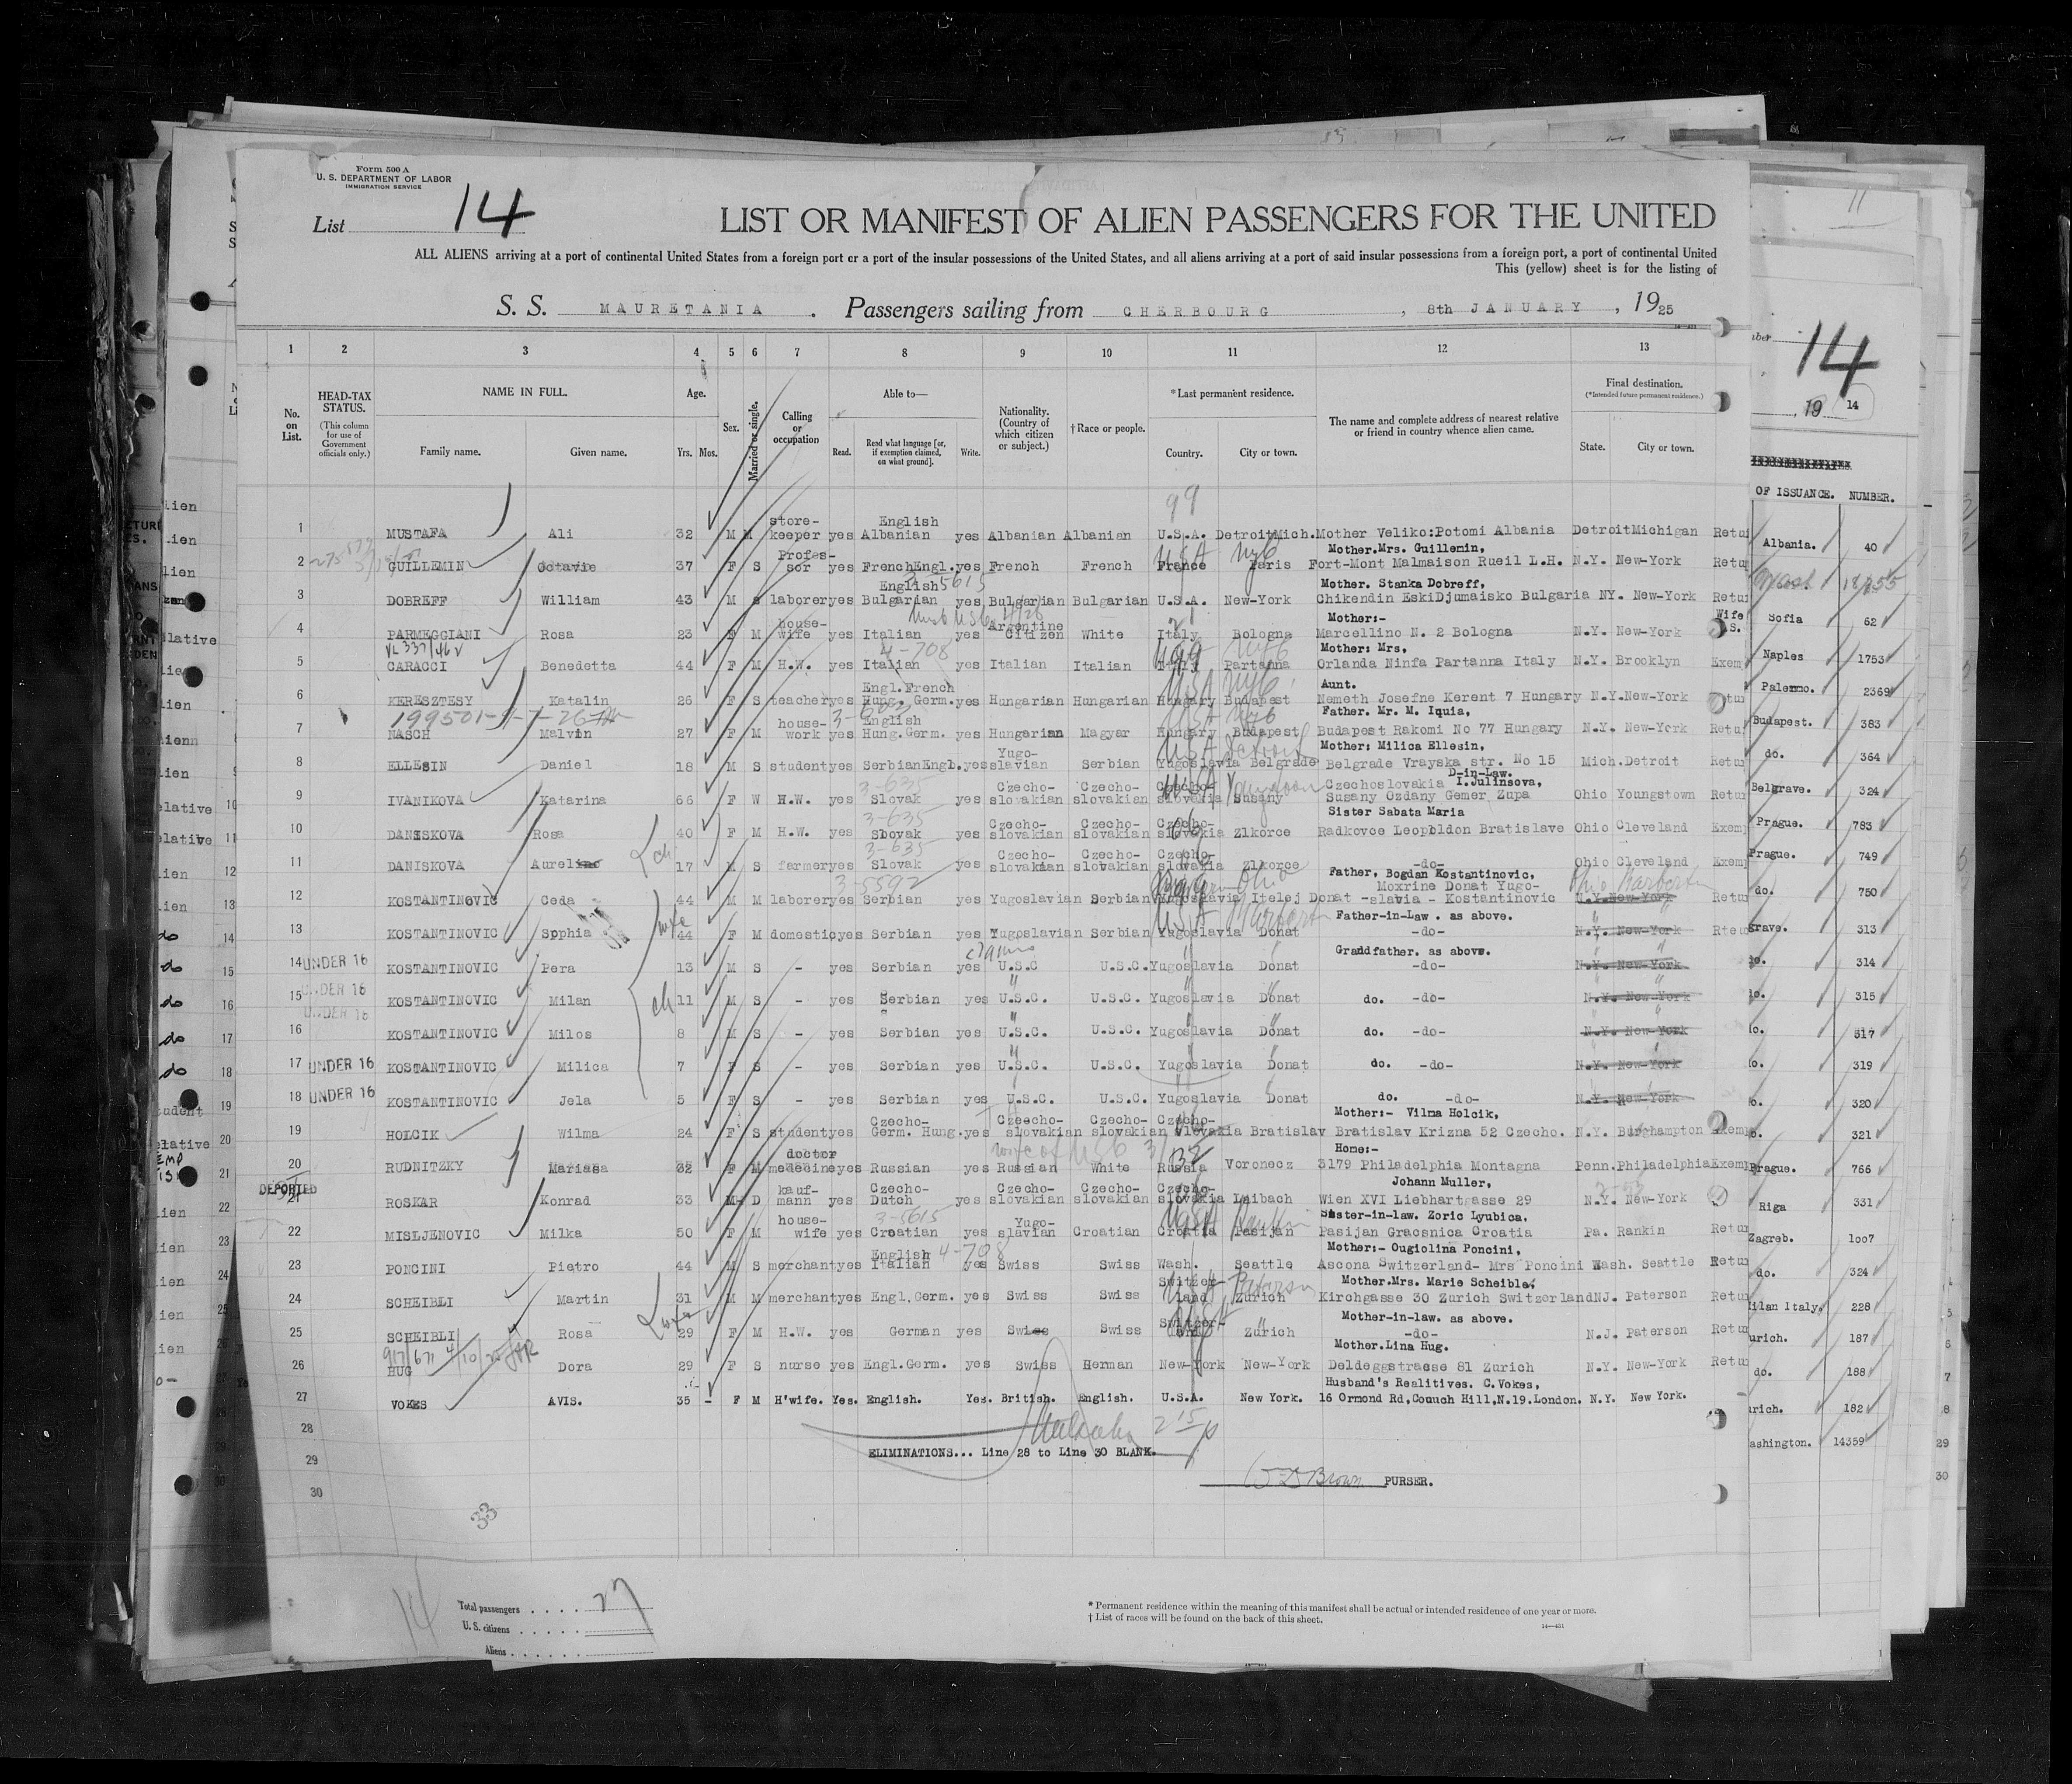 Form 500 A
U. S. DEPARTMENT OF LABOR
IMMIGRATION SERVICE
List 14
LIST OR MANIFEST OF ALIEN PASSENGERS FOR THE UNITED
ALL ALIENS arriving at a port of continental United States from a foreign port or a port of the insular possessions of the United States, and all aliens arriving at a port of said insular possessions from a foreign port, a port of continental United
This (yellow) sheet is for the listing of
S. S. MAURETANIA . Passengers sailing from CHERBOURG , 8th JANUARY , 1925
1 2 3 4 5 6 7 8 9 10 11 12 13
No. on List.
HEAD-TAX STATUS. (This column for use of Government officials only.)
NAME IN FULL. Family name. Given name.
Age. Yrs. Mos.
Sex.
Married or single.
Calling or occupation
Able to— Read. Read what language [or, if exemption claimed, on what ground]. Write.
Nationality. (Country of which citizen or subject.)
†Race or people.
*Last permanent residence. Country. City or town.
The name and complete address of nearest relative or friend in country whence alien came.
Final destination. (*Intended future permanent residence.) State. City or town.
99
1 MUSTAFA Ali 32 M M store-keeper yes English Albanian yes Albanian Albanian U.S.A. Detroit Mich. Mother Veliko:Potomi Albania Detroit Michigan Retu
2 GUILLEMIN Octavie 37 F S Profes-sor yes French Engl. yes French French France Paris Mother.Mrs. Guillemin, Fort-Mont Malmaison Rueil L.H. N.Y. New-York Retu
3 DOBREFF William 43 M S laborer yes English Bulgarian yes Bulgarian Bulgarian U.S.A. New-York Mother. Stanka Dobreff, Chikendin EskiDjumaisko Bulgaria NY. New-York Retu
4 PARMEGGIANI Rosa 23 F M house-wife yes Italian yes Argentine Citizen White Italy Bologna Mother:- Marcellino N. 2 Bologna N.Y. New-York Wife
5 CARACCI Benedetta 44 F M H.W. yes Italian yes Italian Italian Italy Partanna Mother: Mrs, Orlanda Ninfa Partanna Italy N.Y. Brooklyn Exem
6 KERESZTESY Katalin 26 F S teacher yes Engl.French Hung. Germ. yes Hungarian Hungarian Hungary Budapest Aunt. Nemeth Josefne Kerent 7 Hungary N.Y.New-York Retur
7 NASCH Malvin 27 F M house-work yes English Hung.Germ. yes Hungarian Magyar Hungary Budapest Father. Mr. M. Iquia, Budapest Rakomi No 77 Hungary N.Y. New-York Retu
8 ELLESIN Daniel 18 M S student yes Serbian Engl. yes Yugo-slavian Serbian Yugoslavia Belgrade Mother: Milica Ellesin, Belgrade Vrayska str. No 15 Mich. Detroit Retur
9 IVANIKOVA Katarina 66 F W H.W. yes Slovak yes Czecho-slovakian Czecho-slovakian Czecho-slovakia Susany D-in-Law. Czechoslovakia I.Julinsova, Susany Ozdany Gemer Zupa Ohio Youngstown Retur
10 DANISKOVA Rosa 40 F M H.W. yes Slovak yes Czecho-slovakian Czecho-slovakian Czecho-slovakia Zlkorce Sister Sabata Maria Radkovce Leopoldon Bratislave Ohio Cleveland Exem
11 DANISKOVA Aurel 17 M S farmer yes Slovak yes Czecho-slovakian Czecho-slovakian Czecho-slovakia Zlkorce -do- Ohio Cleveland Exem
12 KOSTANTINOVIC Ceda 44 M M laborer yes Serbian yes Yugoslavian Serbian Yugoslavia Itelej Donat Father, Bogdan Kostantinovic, Moxrine Donat Yugo-slavia - Kostantinovic N.Y. New-York Retur
13 KOSTANTINOVIC Sophia 44 F M domestic yes Serbian yes Yugoslavian Serbian Yugoslavia Donat Father-in-Law . as above. -do- N.Y. New-York Rteu
14 UNDER 16 KOSTANTINOVIC Pera 13 M S - yes Serbian yes U.S.C U.S.C. Yugoslavia Donat Grandfather. as above. -do- N.Y. New-York
15 UNDER 16 KOSTANTINOVIC Milan 11 M S - yes Serbian yes U.S.C. U.S.C. Yugoslavia Donat do. -do- N.Y. New-York
16 UNDER 16 KOSTANTINOVIC Milos 8 M S - yes Serbian yes U.S.C. U.S.C. Yugoslavia Donat do. -do- N.Y. New-York
17 UNDER 16 KOSTANTINOVIC Milica 7 F S - yes Serbian yes U.S.C. U.S.C. Yugoslavia Donat do. -do- N.Y. New-York
18 UNDER 16 KOSTANTINOVIC Jela 5 F S - yes Serbian yes U.S.C. U.S.C. Yugoslavia Donat do. -do- N.Y. New-York
19 HOLCIK Wilma 24 F S student yes Czecho- Germ. Hung. yes Czeecho-slovakian Czecho-slovakian Czecho-slovakia Bratislav Mother:- Vilma Holcik, Bratislav Krizna 52 Czecho. N.Y. Binghampton Exem
20 RUDNITZKY 32 F M doctor medecine yes Russian yes Russian White Russia Voronecz Home:- 3179 Philadelphia Montagna Penn. Philadelphia Exem
DEPORTED
21 ROSKAR Konrad 33 M D kauf-mann yes Czecho- Dutch yes Czecho-slovakian Czecho-slovakian Czecho-slovakia Laibach Johann Muller, Wien XVI Liebhartgasse 29 N.Y. New-York
22 MISLJENOVIC Milka 50 F M house-wife yes Croatian yes Yugo-slavian Croatian Croatia Pasijan Sister-in-law. Zoric Lyubica. Pasijan Gracsnica Croatia Pa. Rankin Retur
23 PONCINI Pietro 44 M S merchant yes English Italian yes Swiss Swiss Wash. Seattle Mother:- Ougiolina Poncini, Ascona Switzerland- Mrs Poncini Wash. Seattle Retur
24 SCHEIBLI Martin 31 M M merchant yes Engl.Germ. yes Swiss Swiss Switzer-land Zurich Mother.Mrs. Marie Scheible. Kirchgasse 30 Zurich Switzerland NJ. Paterson Retur
25 SCHEIBLI Rosa 29 F M H.W. yes German yes Swiss Swiss Switzer-land Zürich Mother-in-law. as above. -do- N.J. Paterson Retur
26 HUG Dora 29 F S nurse yes Engl.Germ. yes Swiss Herman New-York New-York Mother.Lina Hug. Deldeggstrasse 81 Zurich N.Y. New-York Retur
27 VOKES AVIS. 35 - F M H'wife. Yes. English. Yes. British. English. U.S.A. New York. Husband's Realitives. C.Vokes, 16 Ormond Rd, Couuch Hill,N.19.London. N.Y. New York.
28
ELIMINATIONS... Line 28 to Line 30 BLANK.
29
Brown PURSER.
30
33
14
Total passengers . . . . 27
U. S. citizens . . . . .
Aliens . . . . . .
* Permanent residence within the meaning of this manifest shall be actual or intended residence of one year or more.
† List of races will be found on the back of this sheet.
14—431
11
14
19 14
OF ISSUANCE. NUMBER.
Albania. 40
Sofia 62
Naples 1753
Palermo. 2369
Budapest. 383
do. 364
Belgrave. 324
Prague. 783
Prague. 749
do. 750
grave. 313
do. 314
do. 315
o. 317
o. 319
o. 320
o. 321
Prague. 766
Riga 331
Zagreb. 1007
do. 324
Milan Italy. 228
urich. 187
do. 188
urich. 182
ashington. 14359